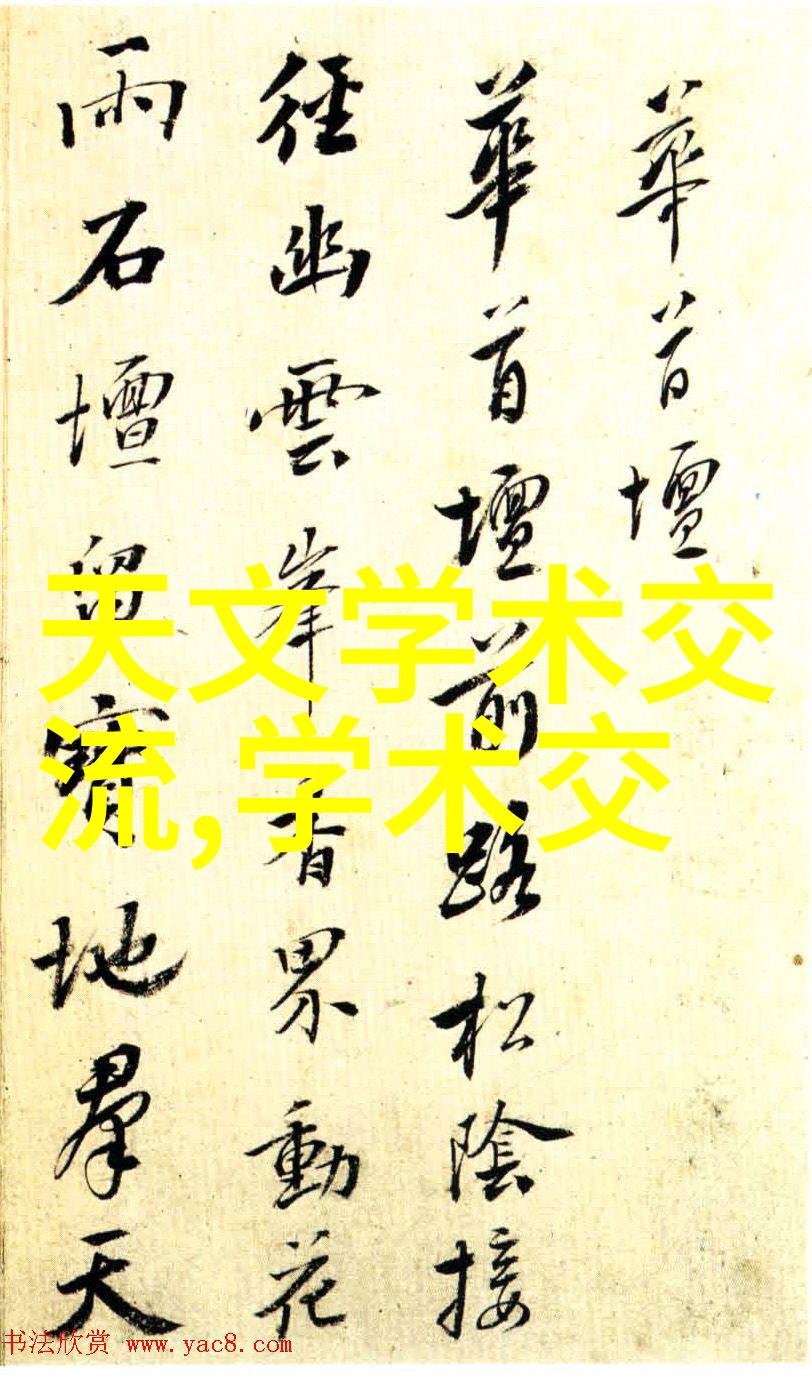 華首壇
華首壇前路松陰接
徑幽雲岸香界動花
雨石壇留寶地羣天
天文学术交
流,学术交
书法欣赏 www.yac8.com